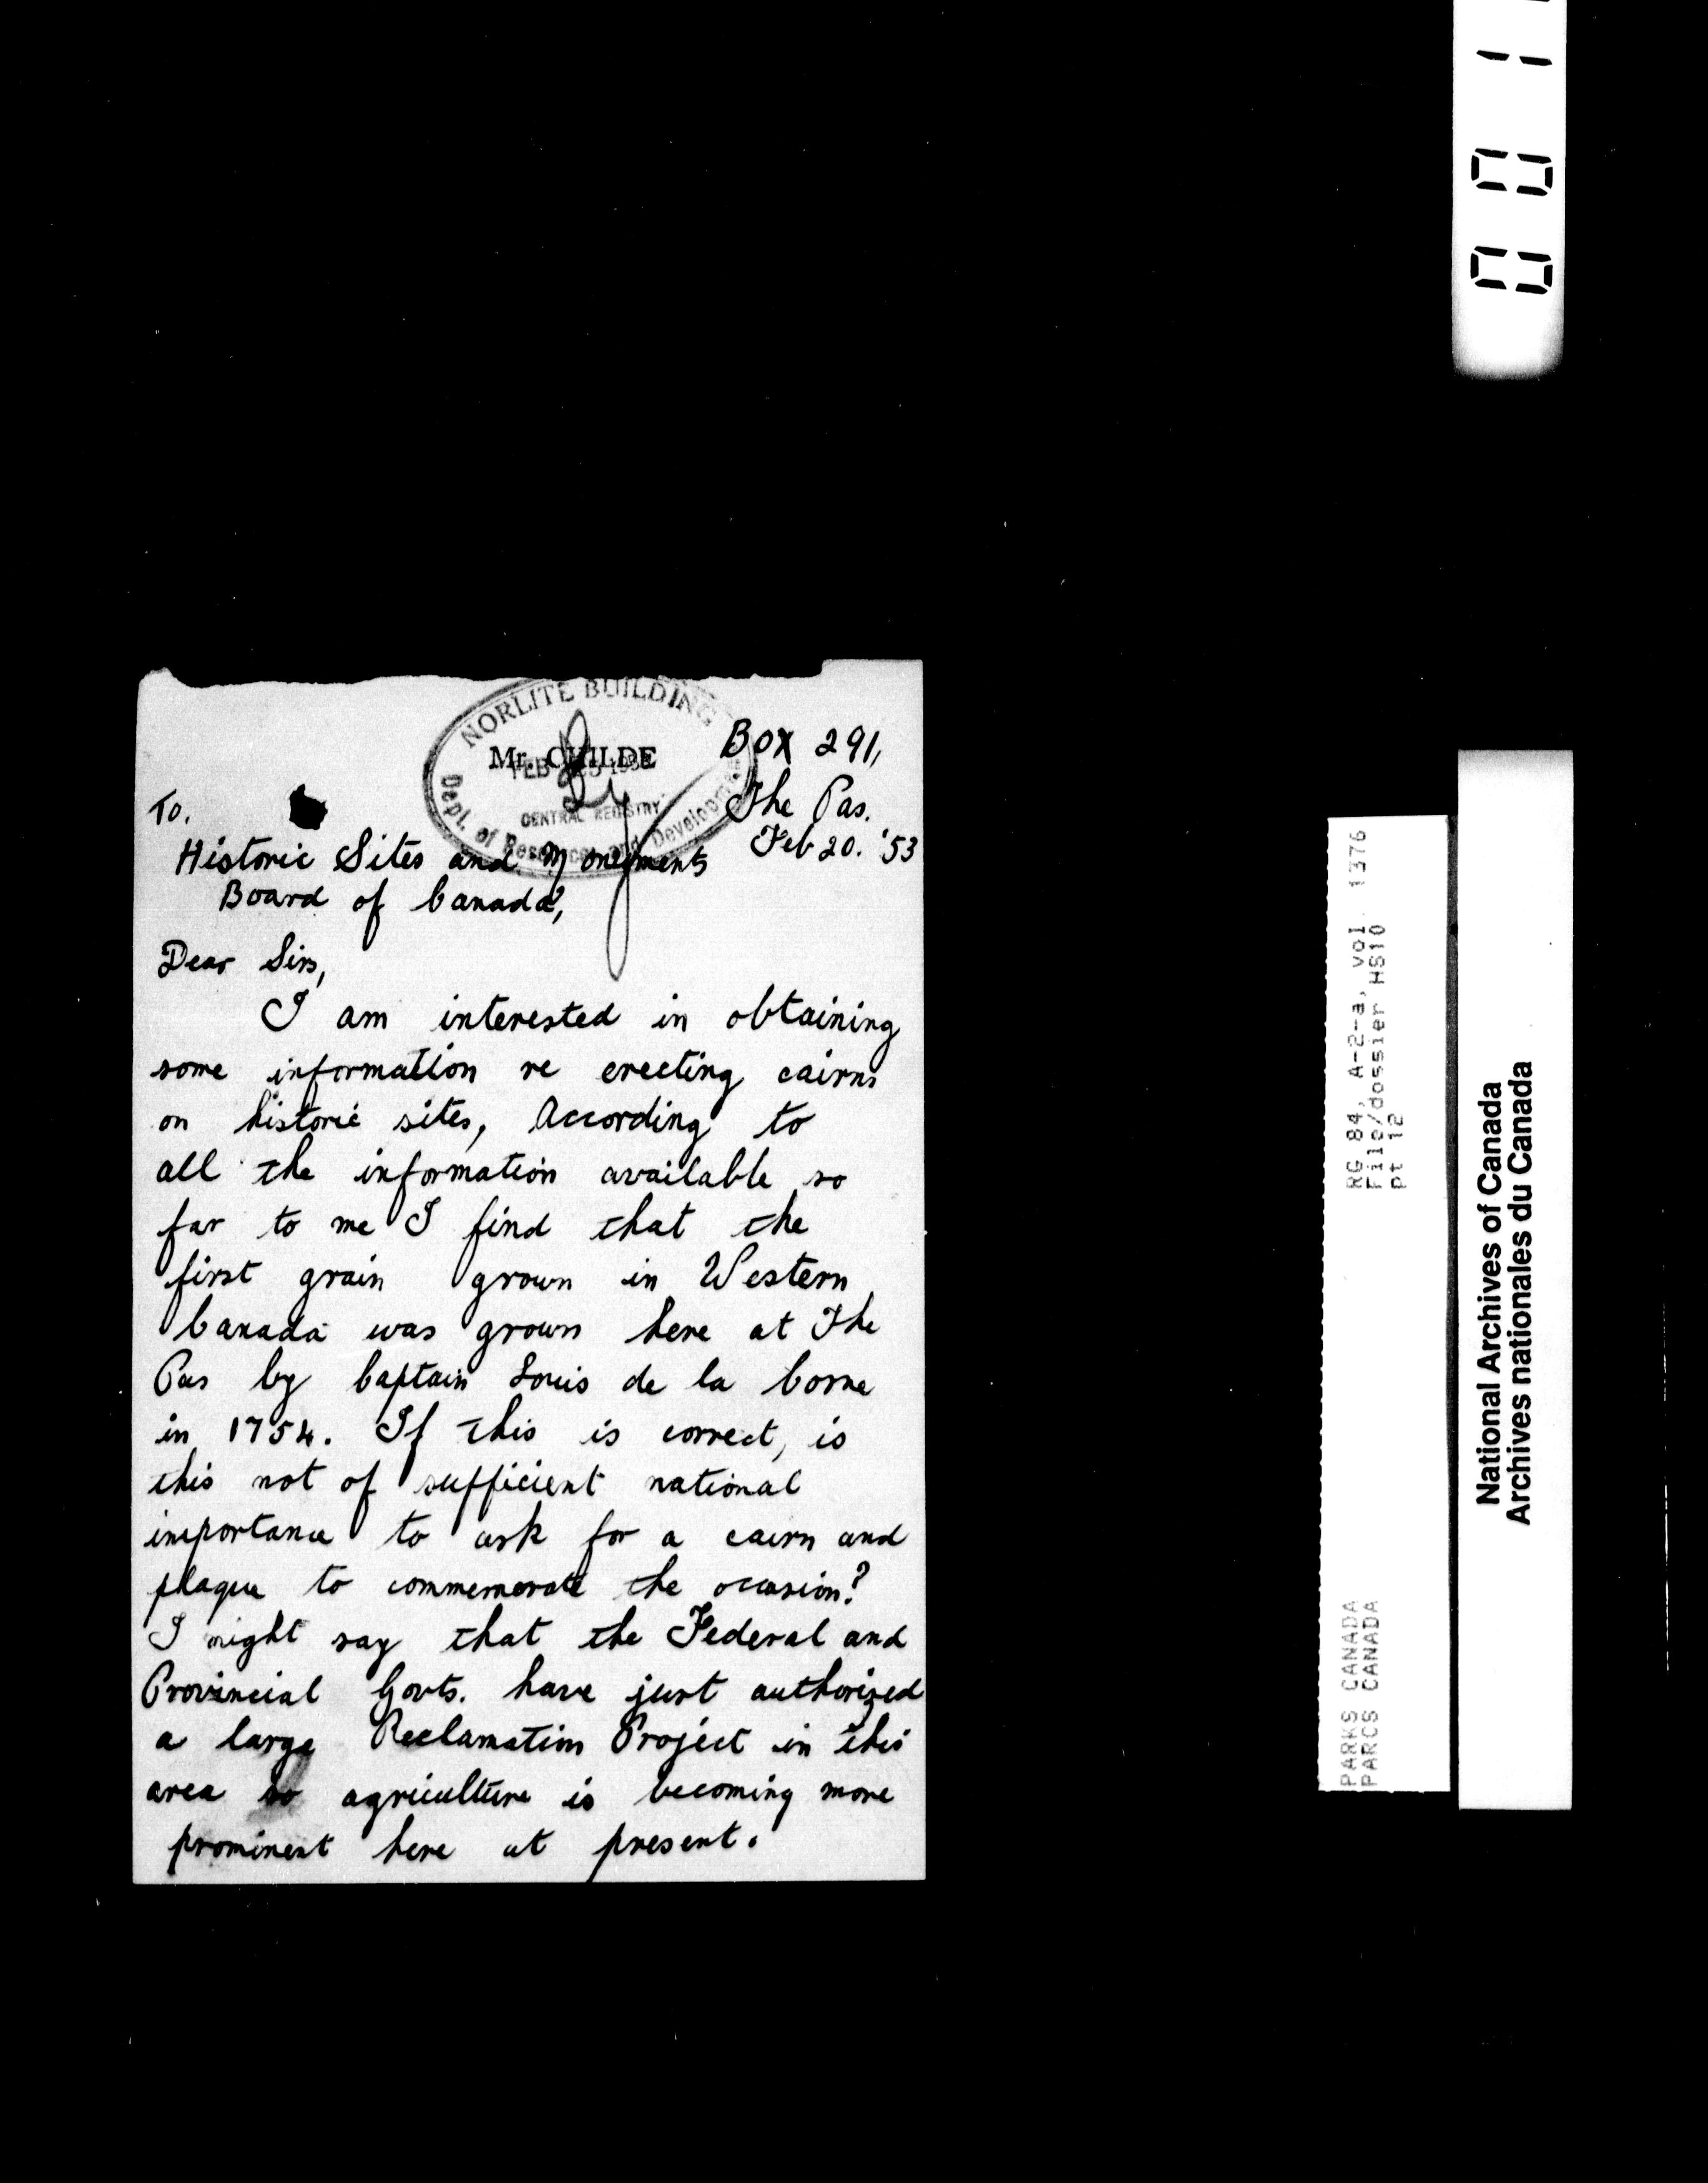 NORLITE BUILDING
Mr. CHILDE
FEB 1953
CENTRAL REGISTRY
Dept. of Resources and Development
Box 291,
The Pas.
Feb 20. '53
To.
Historic Sites and Monuments
Board of Canada,
Dear Sirs,
I am interested in obtaining
some information re erecting cairns
on historic sites, According to
all the information available so
far to me I find that the
first grain grown in Western
Canada was grown here at The
Pas by Captain Louis de la Corne
in 1754. If this is correct, is
this not of sufficient national
importance to ask for a cairn and
plaque to commemorate the occasion?
I might say that the Federal and
Provincial Govts. have just authorized
a large Reclamation Project in this
area so agriculture is becoming more
prominent here at present.
001
RG 84, A-2-a, vol. 1376
File/dossier HS10
pt 12
PARKS CANADA
PARCS CANADA
National Archives of Canada
Archives nationales du Canada